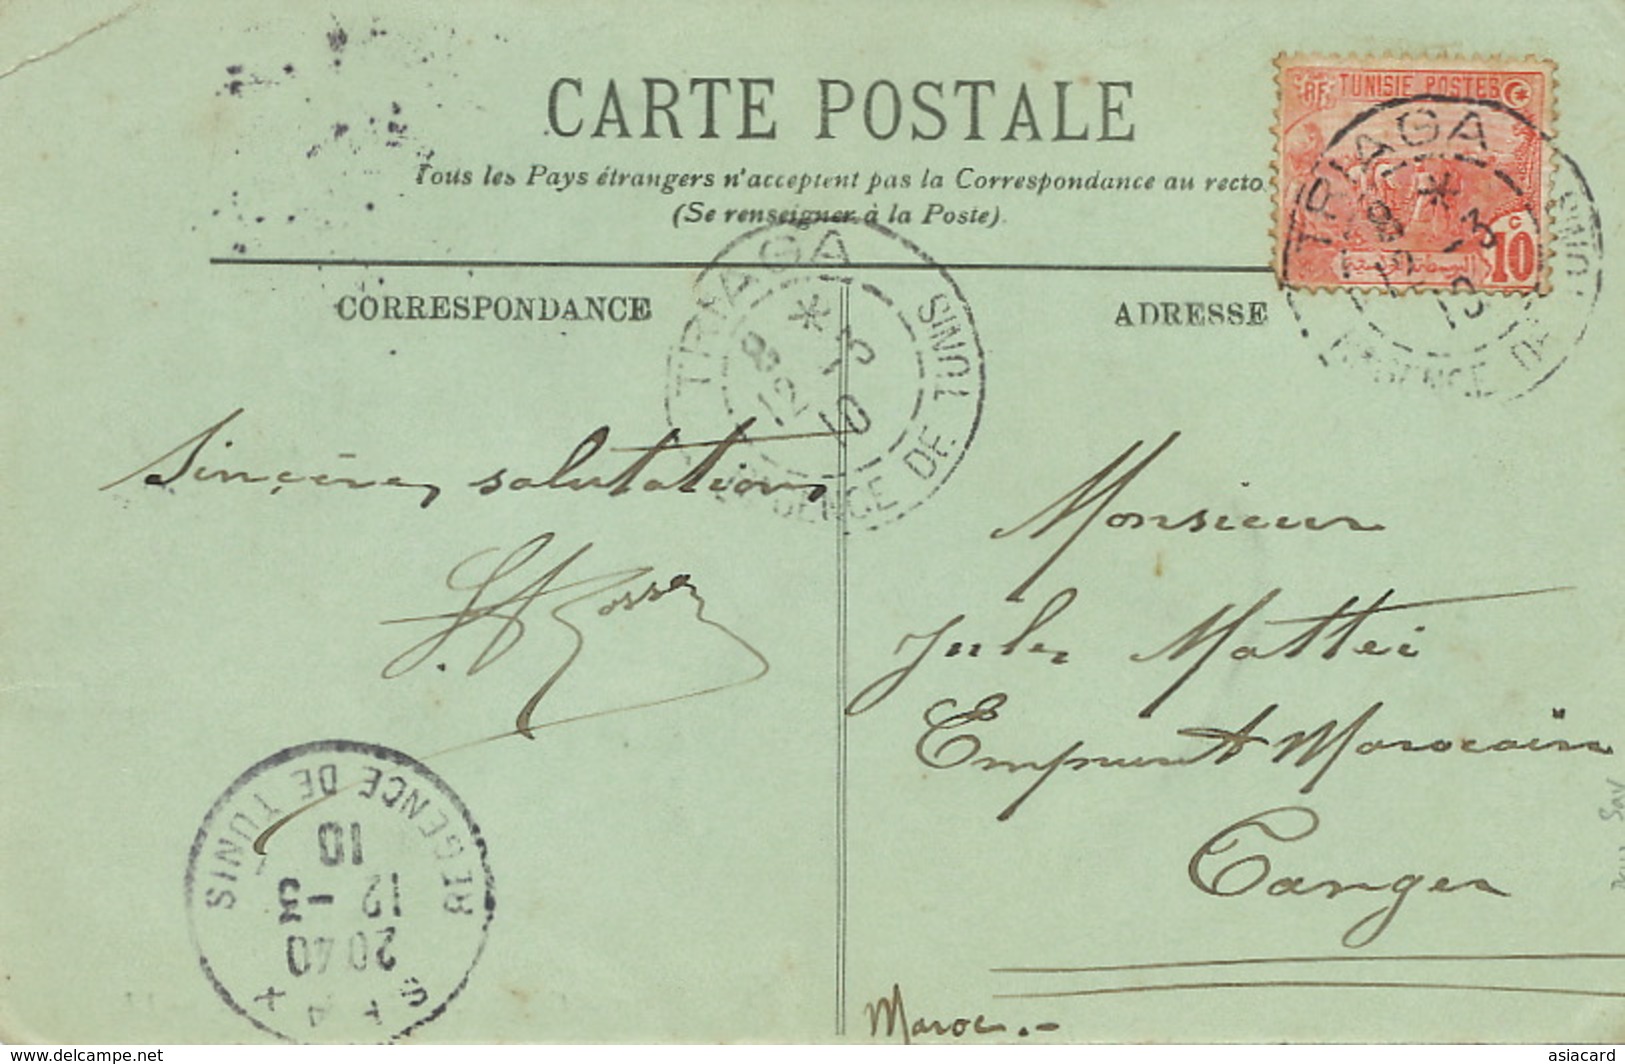 CARTE POSTALE
Tous les Pays étrangers n'acceptent pas la Correspondance au recto
(Se renseigner à la Poste).
RF TUNISIE POSTES
10 c
TRIAGA
* 8
3
12 10
REGENCE DE TUNIS
CORRESPONDANCE
ADRESSE
TRIAGA
* 8
3
12 10
REGENCE DE TUNIS
Sincères salutations
Monsieur
Jules Mattei
Emprunt Marocain
Tanger
Maroc.-
SFAX
20 40
12 - 3
10
REGENCE DE TUNIS
www.delcampe.net
asiacard